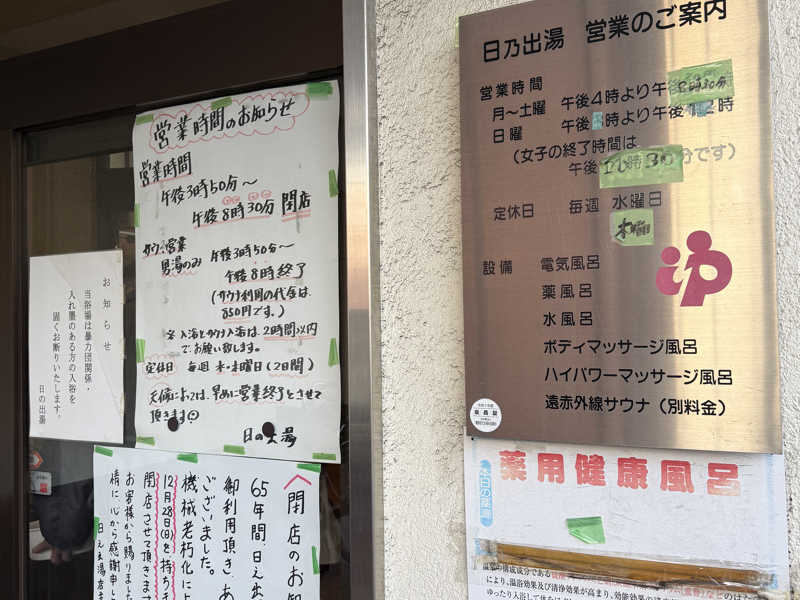 お知らせ
当浴場は暴力団関係・
入れ墨のある方の入浴を
固くお断りいたします。
日の出湯
営業時間のお知らせ
営業時間
午後3時50分〜
午後8時30分 閉店
サウナ営業
男湯のみ 午後3時50分〜
午後8時終了
(サウナ利用の代金は
850円です。)
※ 入浴とサウナ入浴は、2時間以内
でお願い致します。
定休日 毎週 水・木曜日(2日間)
天候によっては、早めに営業終了とさせて
頂きます
日の出湯
閉店のお知
65年間、日之出
御利用頂き、あ
ございました。
機械老朽化によ
12月28日(日)を持ちま
閉店させて頂きます
お客様から賜りました
情に心から感謝申し
日之出湯店主
日乃出湯 営業のご案内
営業時間
月〜土曜 午後4時より午後8時30分
日曜 午後3時より午後12時
(女子の終了時間は
午後11時30分です)
定休日 毎週 水曜日
木曜
設備 電気風呂
薬風呂
水風呂
ボディマッサージ風呂
ハイパワーマッサージ風呂
遠赤外線サウナ(別料金)
本日の薬湯
薬用健康風呂
により、温浴効果及び清浄効果が高まり、効能効果の
ゆったり入浴して体を